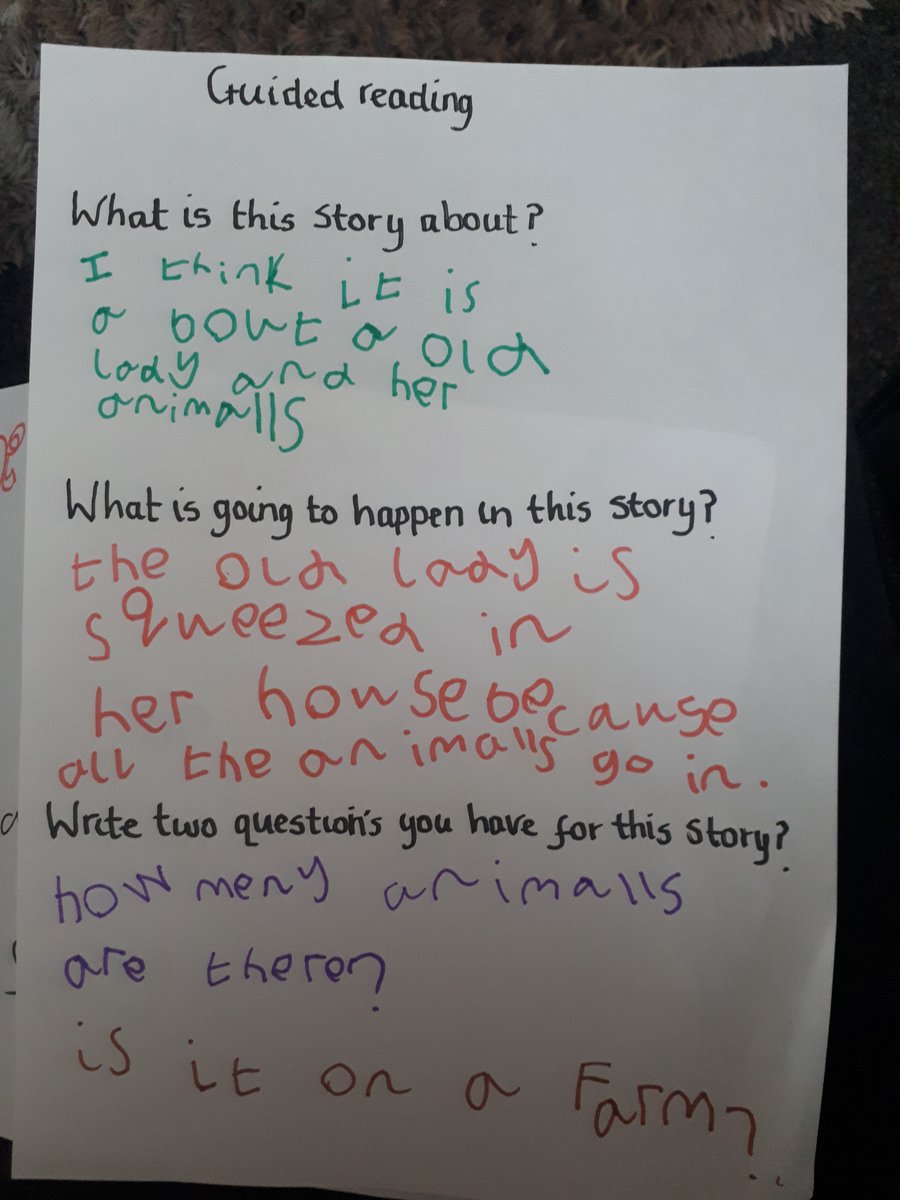 Guided reading
What is this story about?
I think it is
a bout a old
lady and her
animalls
What is going to happen in this story?
the old lady is
squeezed in
her house because
all the animalls go in.
Write two questions you have for this story?
how meny animalls
are there?
is it on a Farm?